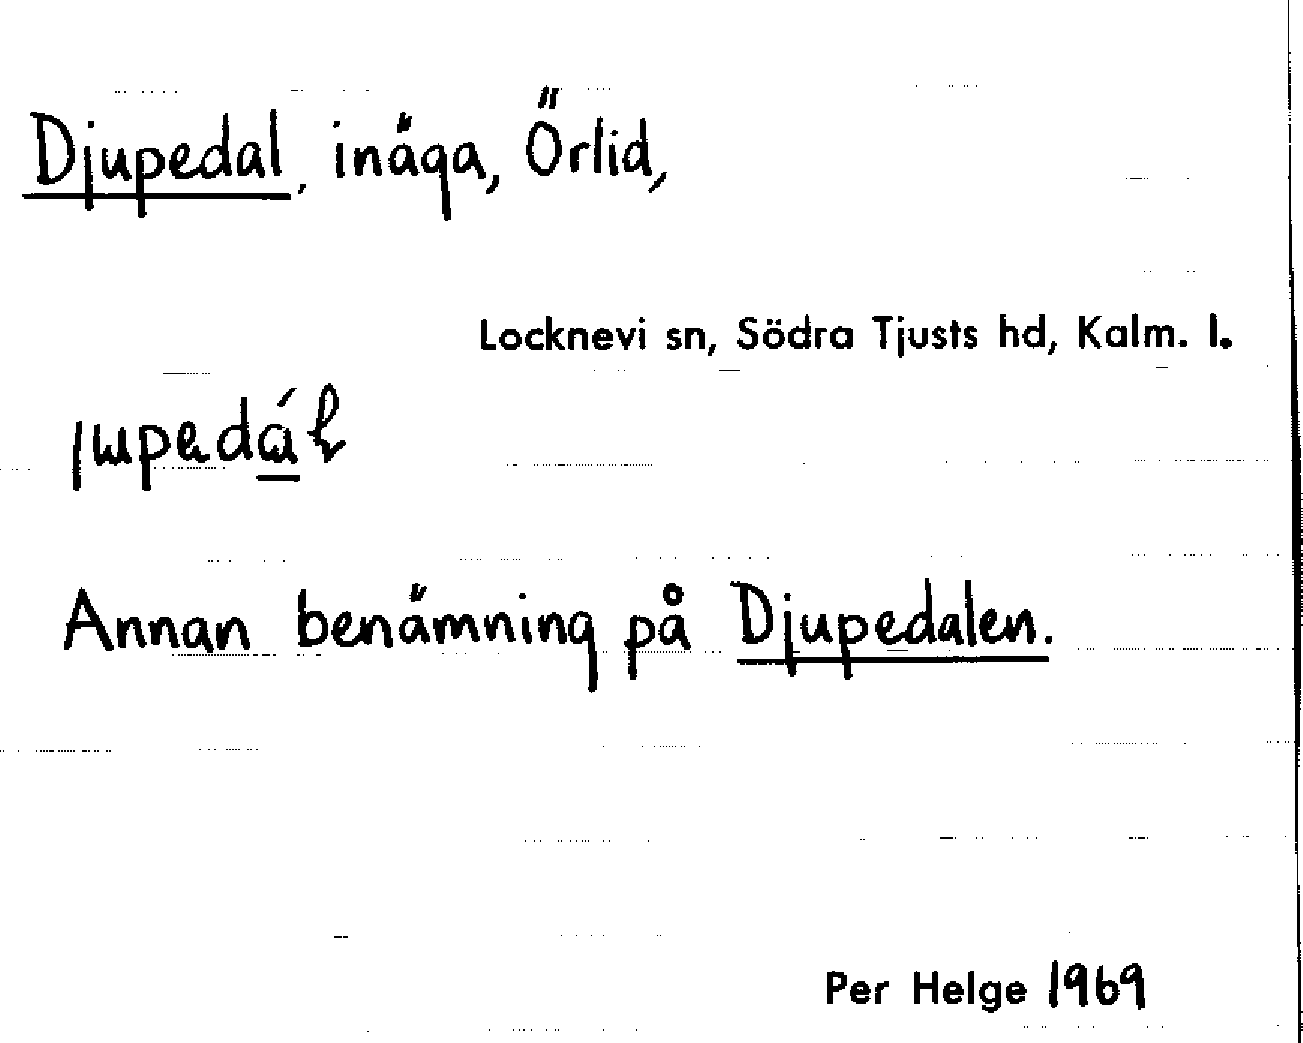 Djupedal, inäga, Örlid,
Locknevi sn, Södra Tjusts hd, Kalm. l.
Annan benämning på Djupedalen.
Per Helge 1969